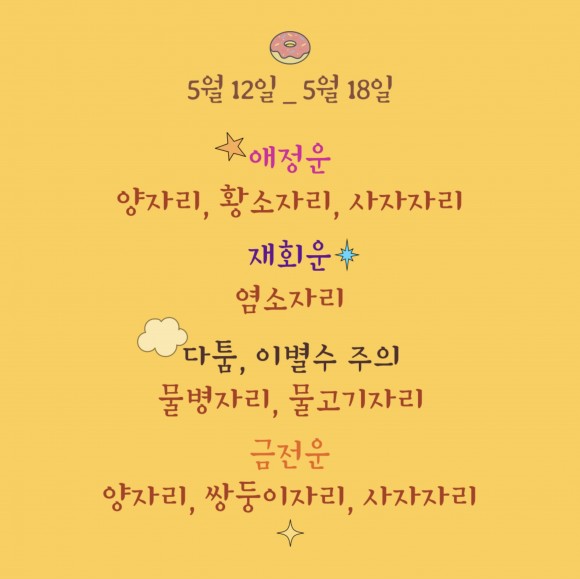 5월 12일 _ 5월 18일
애정운
양자리, 황소자리, 사자자리
재회운
염소자리
다툼, 이별수 주의
물병자리, 물고기자리
금전운
양자리, 쌍둥이자리, 사자자리